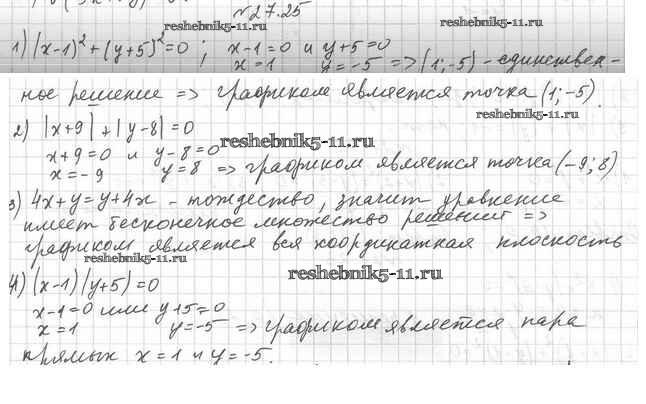 №27.25
reshebnik5-11.ru
1) (x-1)²+(y+5)²=0 ; x-1=0 и y+5=0
x=1 y=-5 => (1;-5) - единствен-
ное решение => графиком является точка (1;-5).
reshebnik5-11.ru
2) |x+9|+|y-8|=0
reshebnik5-11.ru
x+9=0 и y-8=0
x=-9 y=8 => графиком является точка (-9;8)
3) 4x+y=y+4x - тождество, значит уравнение
имеет бесконечное множество решений =>
графиком является вся координатная плоскость
reshebnik5-11.ru
reshebnik5-11.ru
4) (x-1)(y+5)=0
x-1=0 или y+5=0
x=1 y=-5 => графиком является пара
прямых x=1 и y=-5.